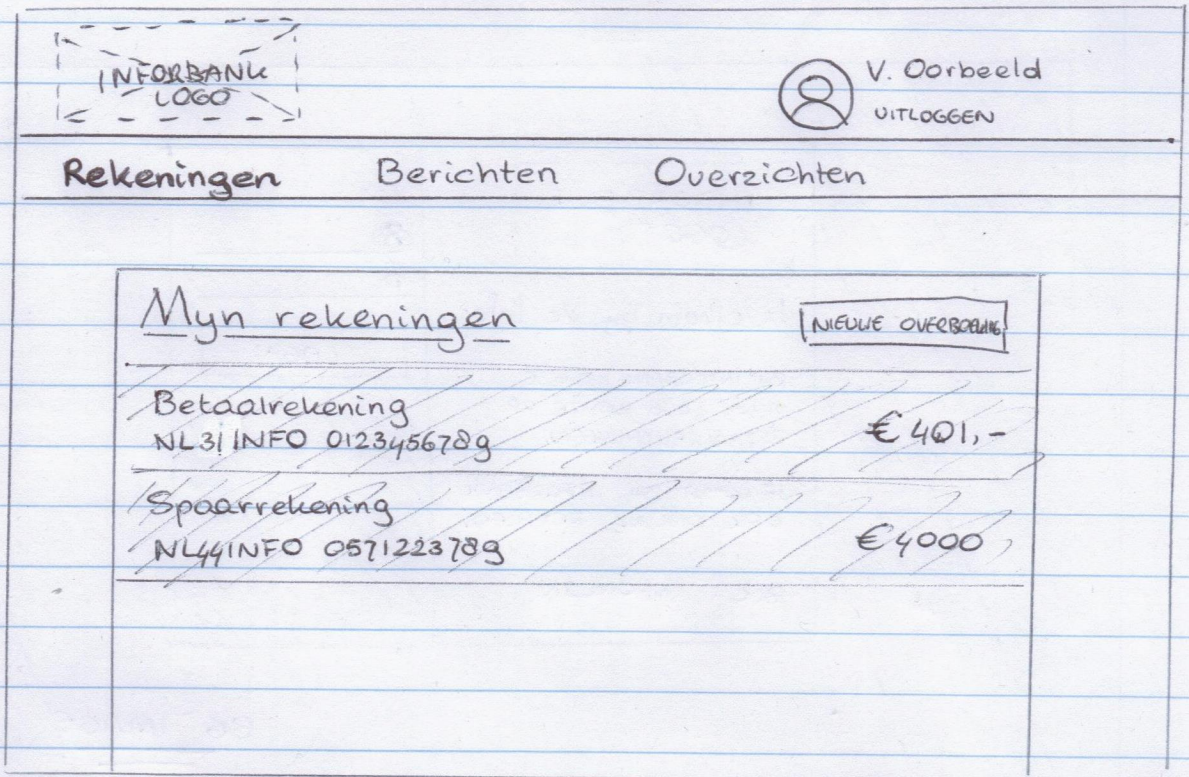 INFORBANK
LOGO
V. Oorbeeld
UITLOGGEN
Rekeningen Berichten Overzichten
Mijn rekeningen
NIEUWE OVERBOEKING
Betaalrekening
NL31INFO 0123456789
€ 401,-
Spaarrekening
NL44INFO 0571223789
€ 4000